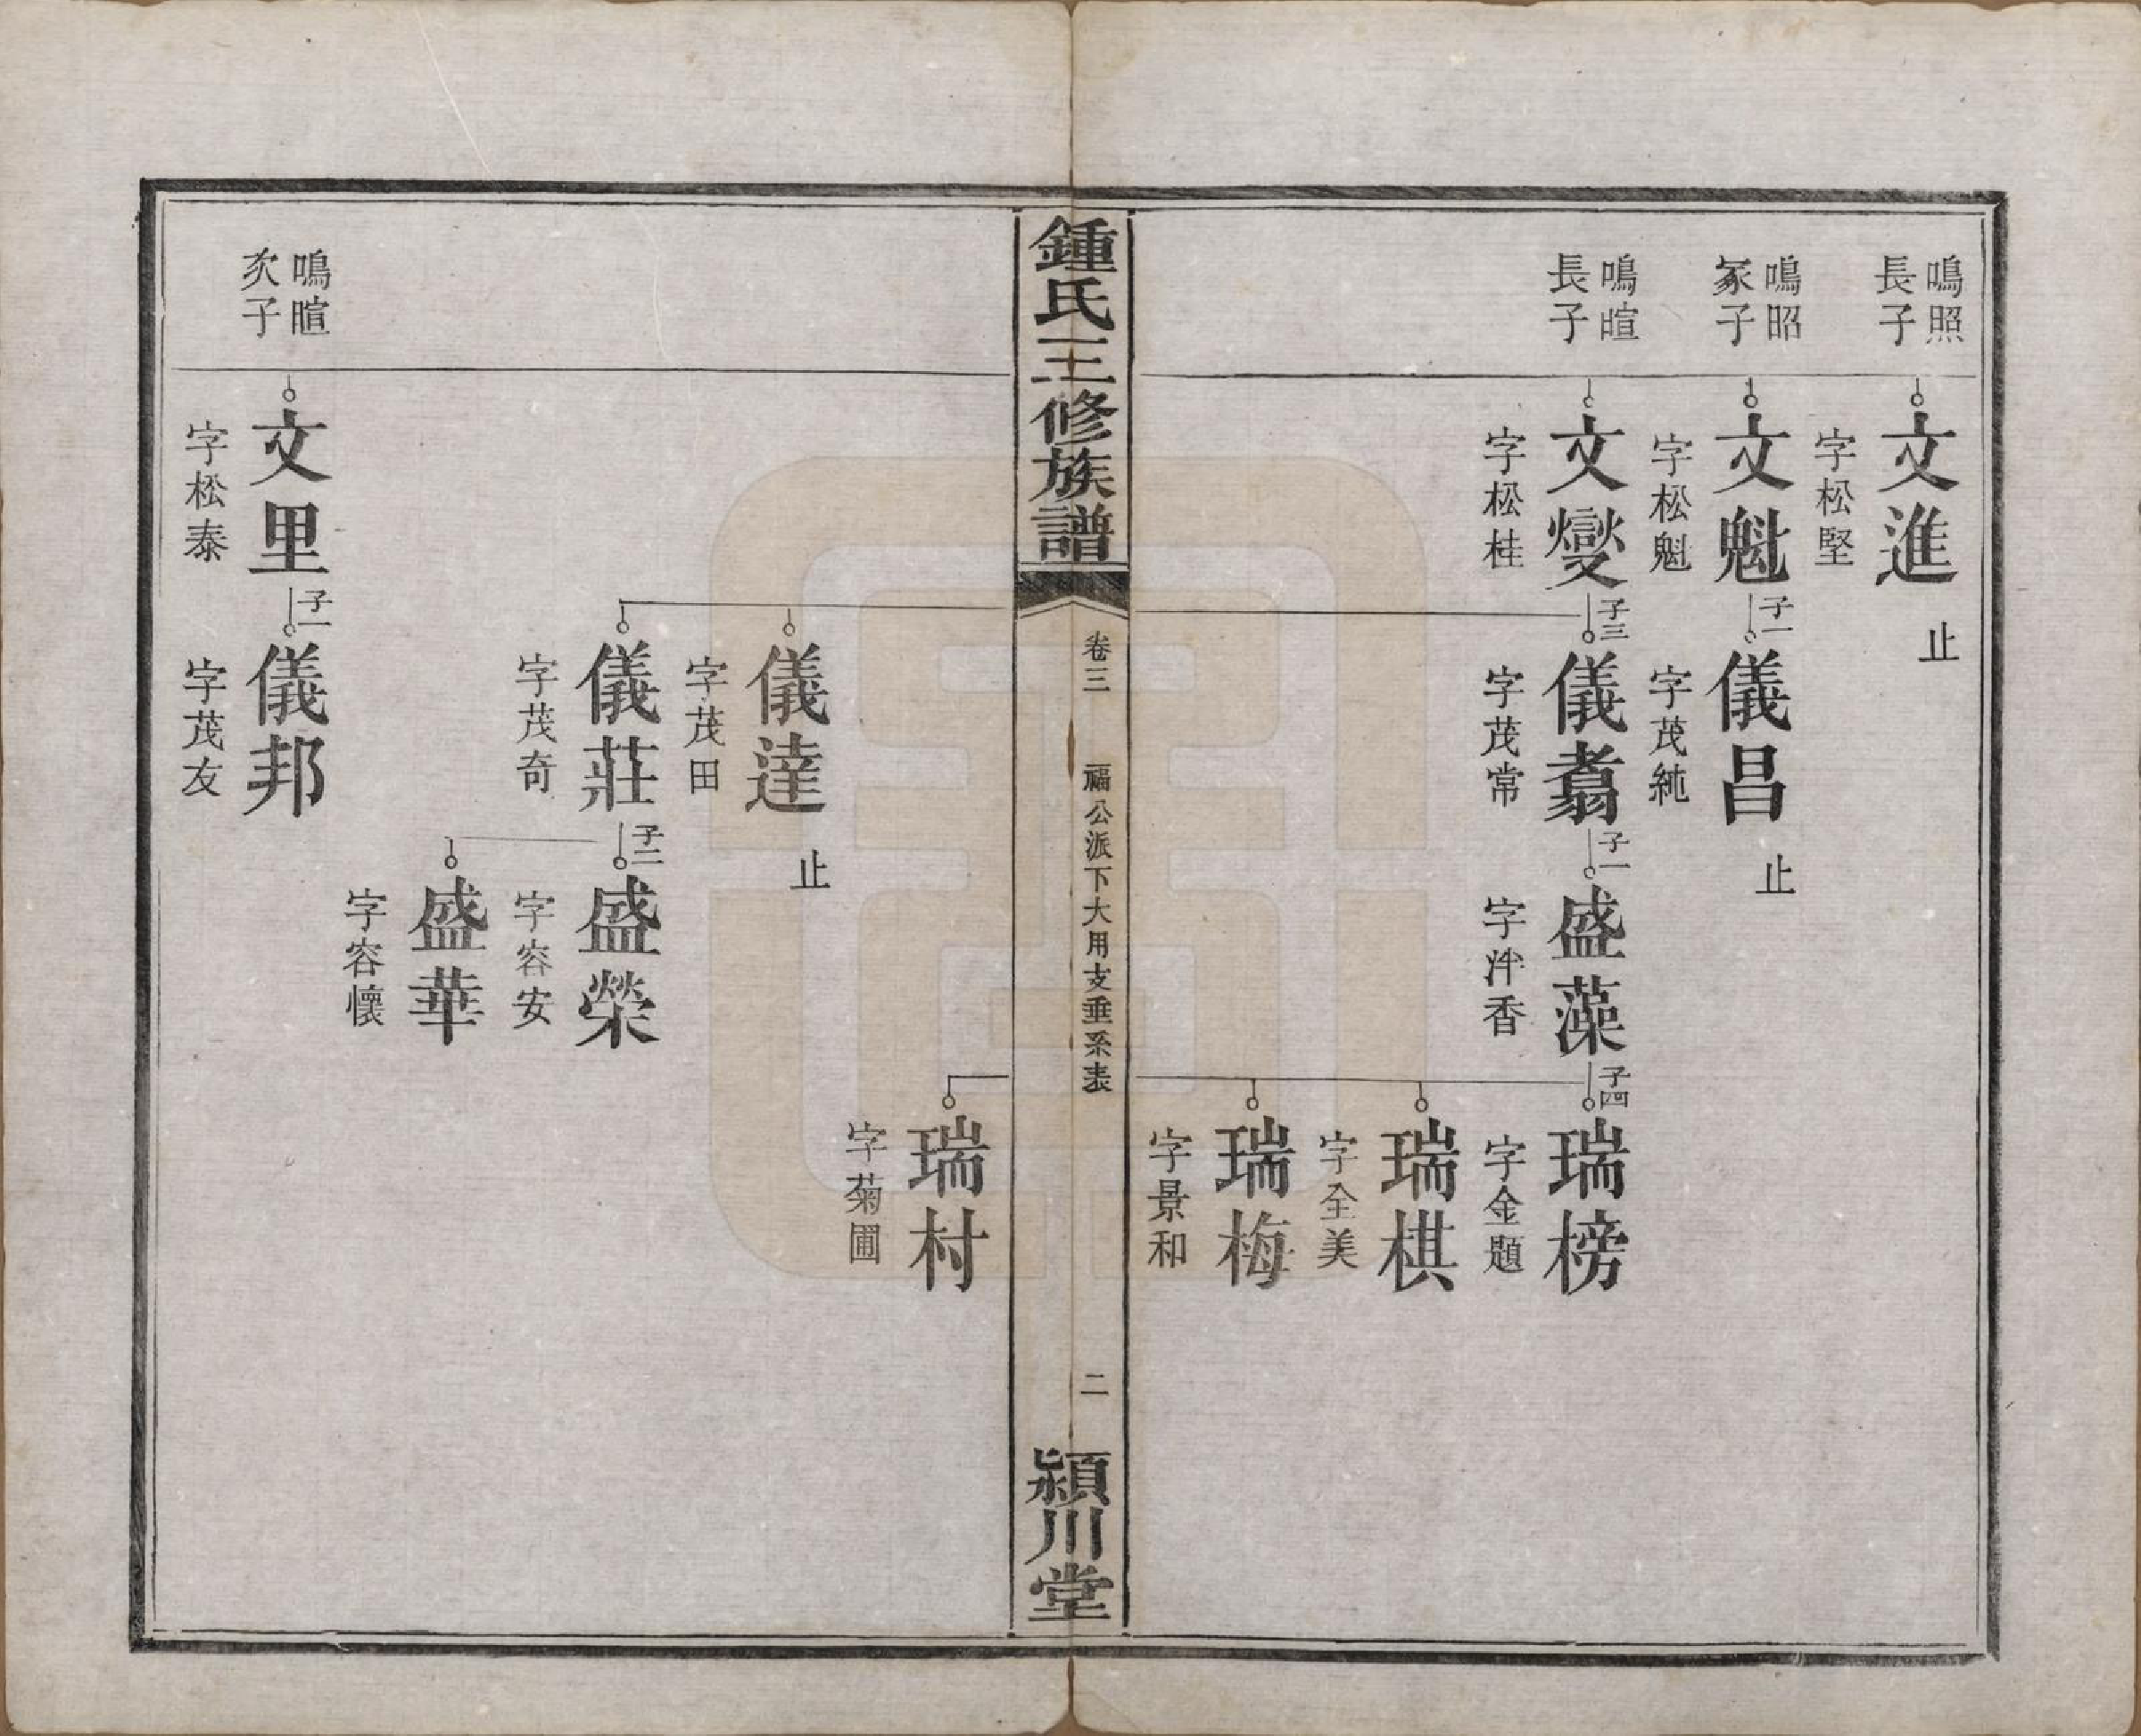 鳴照
長子
文進
字松堅
止
鳴昭
冢子
文魁
字松魁
子一
儀昌
字茂純
止
鳴暄
長子
文燮
字松桂
子三
儀翥
字茂常
子一
盛藻
字泮香
子四
瑞榜
字金題
瑞棋
字全美
瑞梅
字景和
鍾氏三修族譜
卷三
福公派下大用支垂系表
二
潁川堂
瑞村
字菊圃
儀達
字茂田
止
儀莊
字茂奇
子二
盛榮
字容安
盛華
字容懷
鳴暄
次子
文里
字松泰
子一
儀邦
字茂友